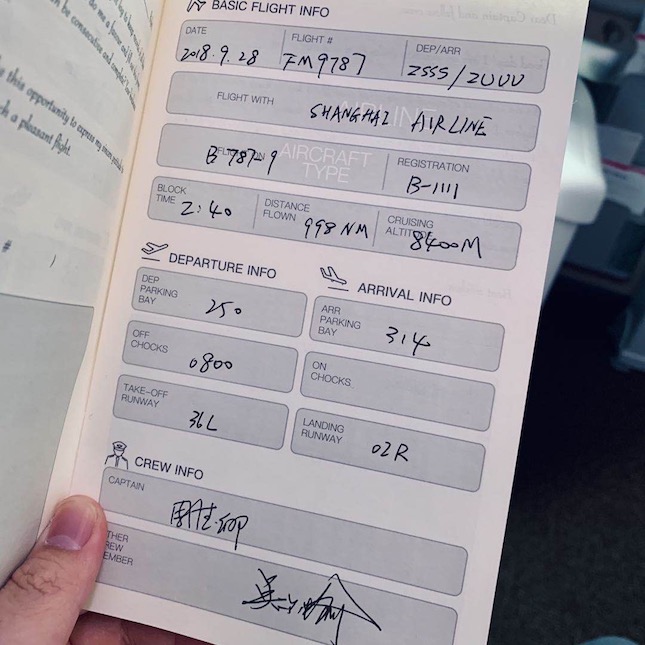 Dear Captain and
this opportunity to express my
a pleasant flight.
#
BASIC FLIGHT INFO
DATE
2018.9.28
FLIGHT #
FM9787
DEP/ARR
ZSSS/ZUUU
FLIGHT WITH
AIRLINE
SHANGHAI AIRLINE
FLIGHT ON
AIRCRAFT TYPE
B-787-9
REGISTRATION
B-1111
BLOCK TIME
2:40
DISTANCE FLOWN
998 NM
CRUISING ALTITUDE
8400M
DEPARTURE INFO
ARRIVAL INFO
DEP PARKING BAY
250
ARR PARKING BAY
314
OFF CHOCKS
0800
ON CHOCKS
TAKE-OFF RUNWAY
36L
LANDING RUNWAY
02R
CREW INFO
CAPTAIN